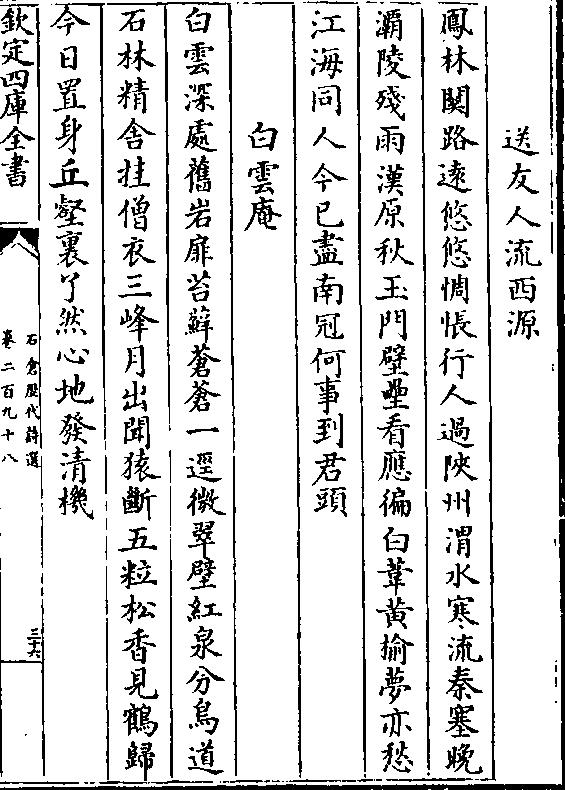 送友人流西源
鳳林関路遠悠悠惆悵行人過陜州渭水寒流秦塞晚
灞陵殘雨漢原秋玉門壁壘看應徧白葦黃榆夢亦愁
江海同人今已盡南冠何事到君頭
白雲庵
白雲深處舊岩扉苔蘚蒼蒼一逕微翠壁紅泉分鳥道
石林精舎挂僧衣三峰月出聞猿斷五粒松香見鶴歸
今日置身丘壑裏了然心地發清機
欽定四庫全書
石倉歷代詩選
卷二百九十八
三十六